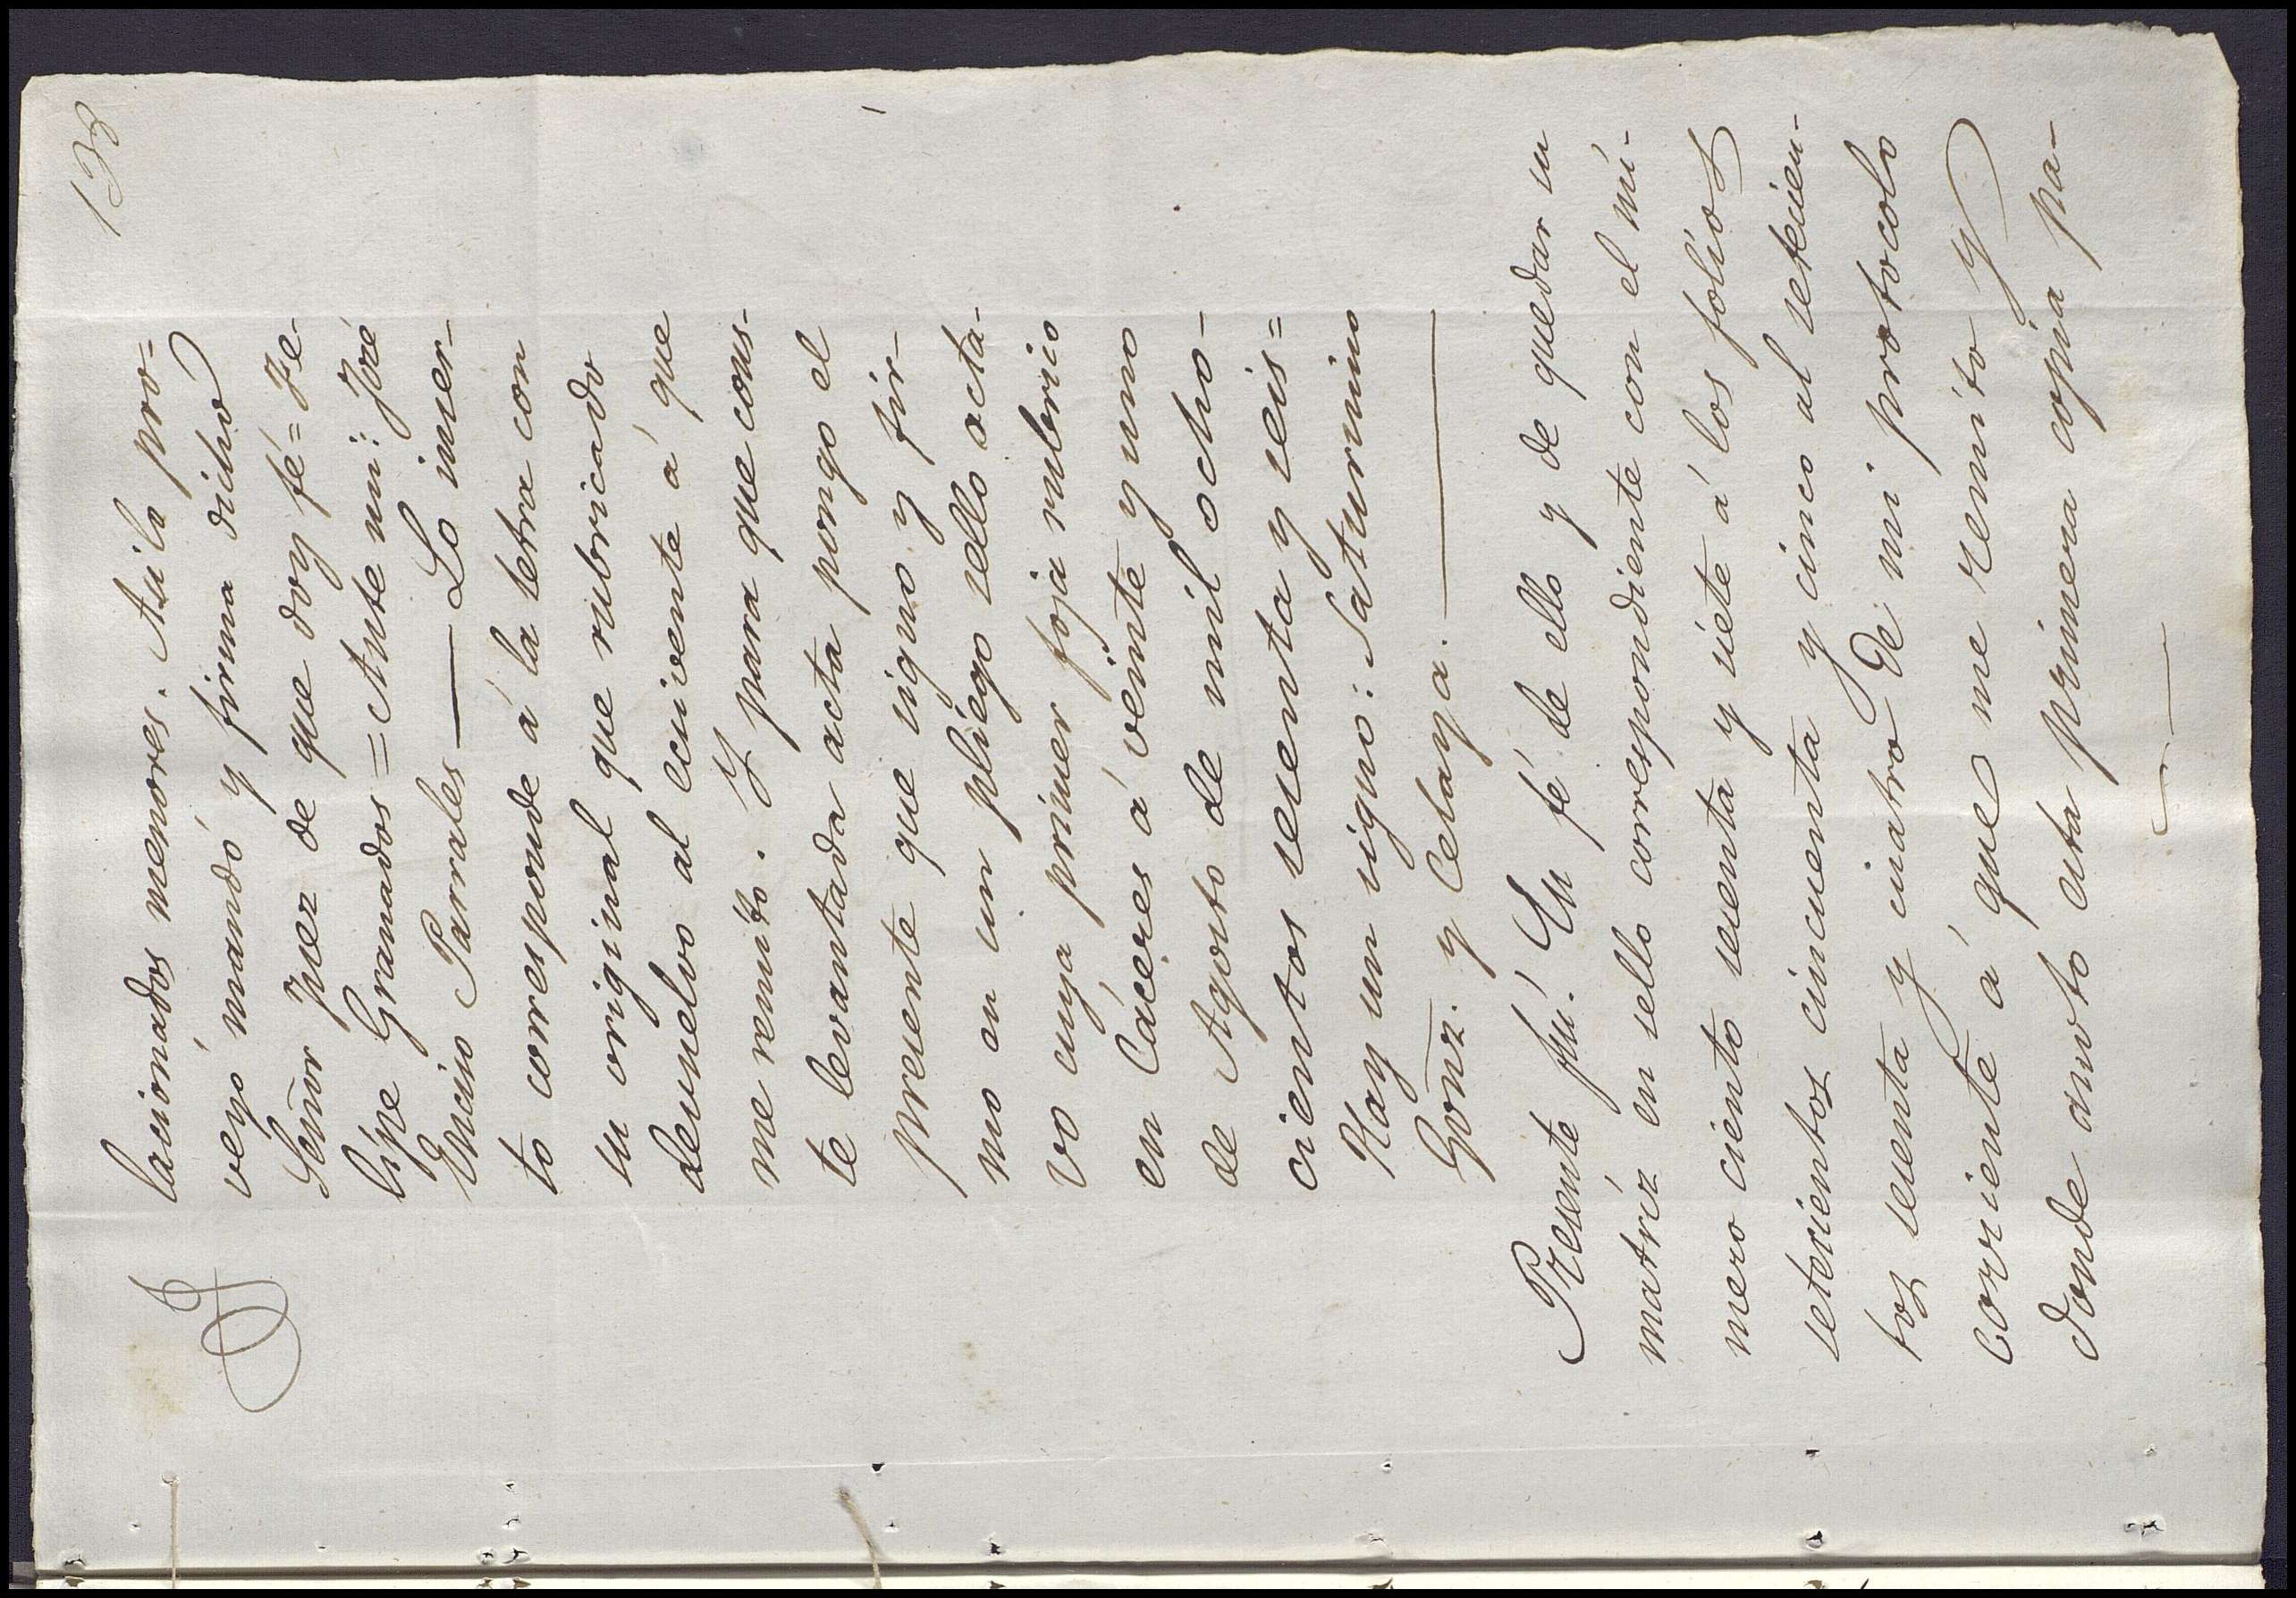 138
lacionados menores. Asi lo pro=
veyó mandó y firma dicho
Señor Juez de que doy fé = Fe-
lípe Granados = Ante mi: José
Enciso Parrales — Lo inser-
to corresponde á la letra con
su original que rubricado
devuelvo al ecsivente á que
me remito. Y para que cons-
te levantada acta pongo el
presente que signo y fir-
mo en un pliego sello octa-
vo cuya primer foja rubrico
en Cáceres á veinte y uno
de Agosto de mil ocho-
cientos sesenta y seis =
Hay un signo: Saturnino
Gonz. y Celaya. —
Presente fuí. En fé de ello y de quedar su
matríz en sello correspondiente con el nú-
mero ciento sesenta y siete á los folios
setecientos cincuenta y cinco al setecien-
tos sesenta y cuatro de mi protocolo
corriente á que me remíto y
donde anoto esta primera copia pa-